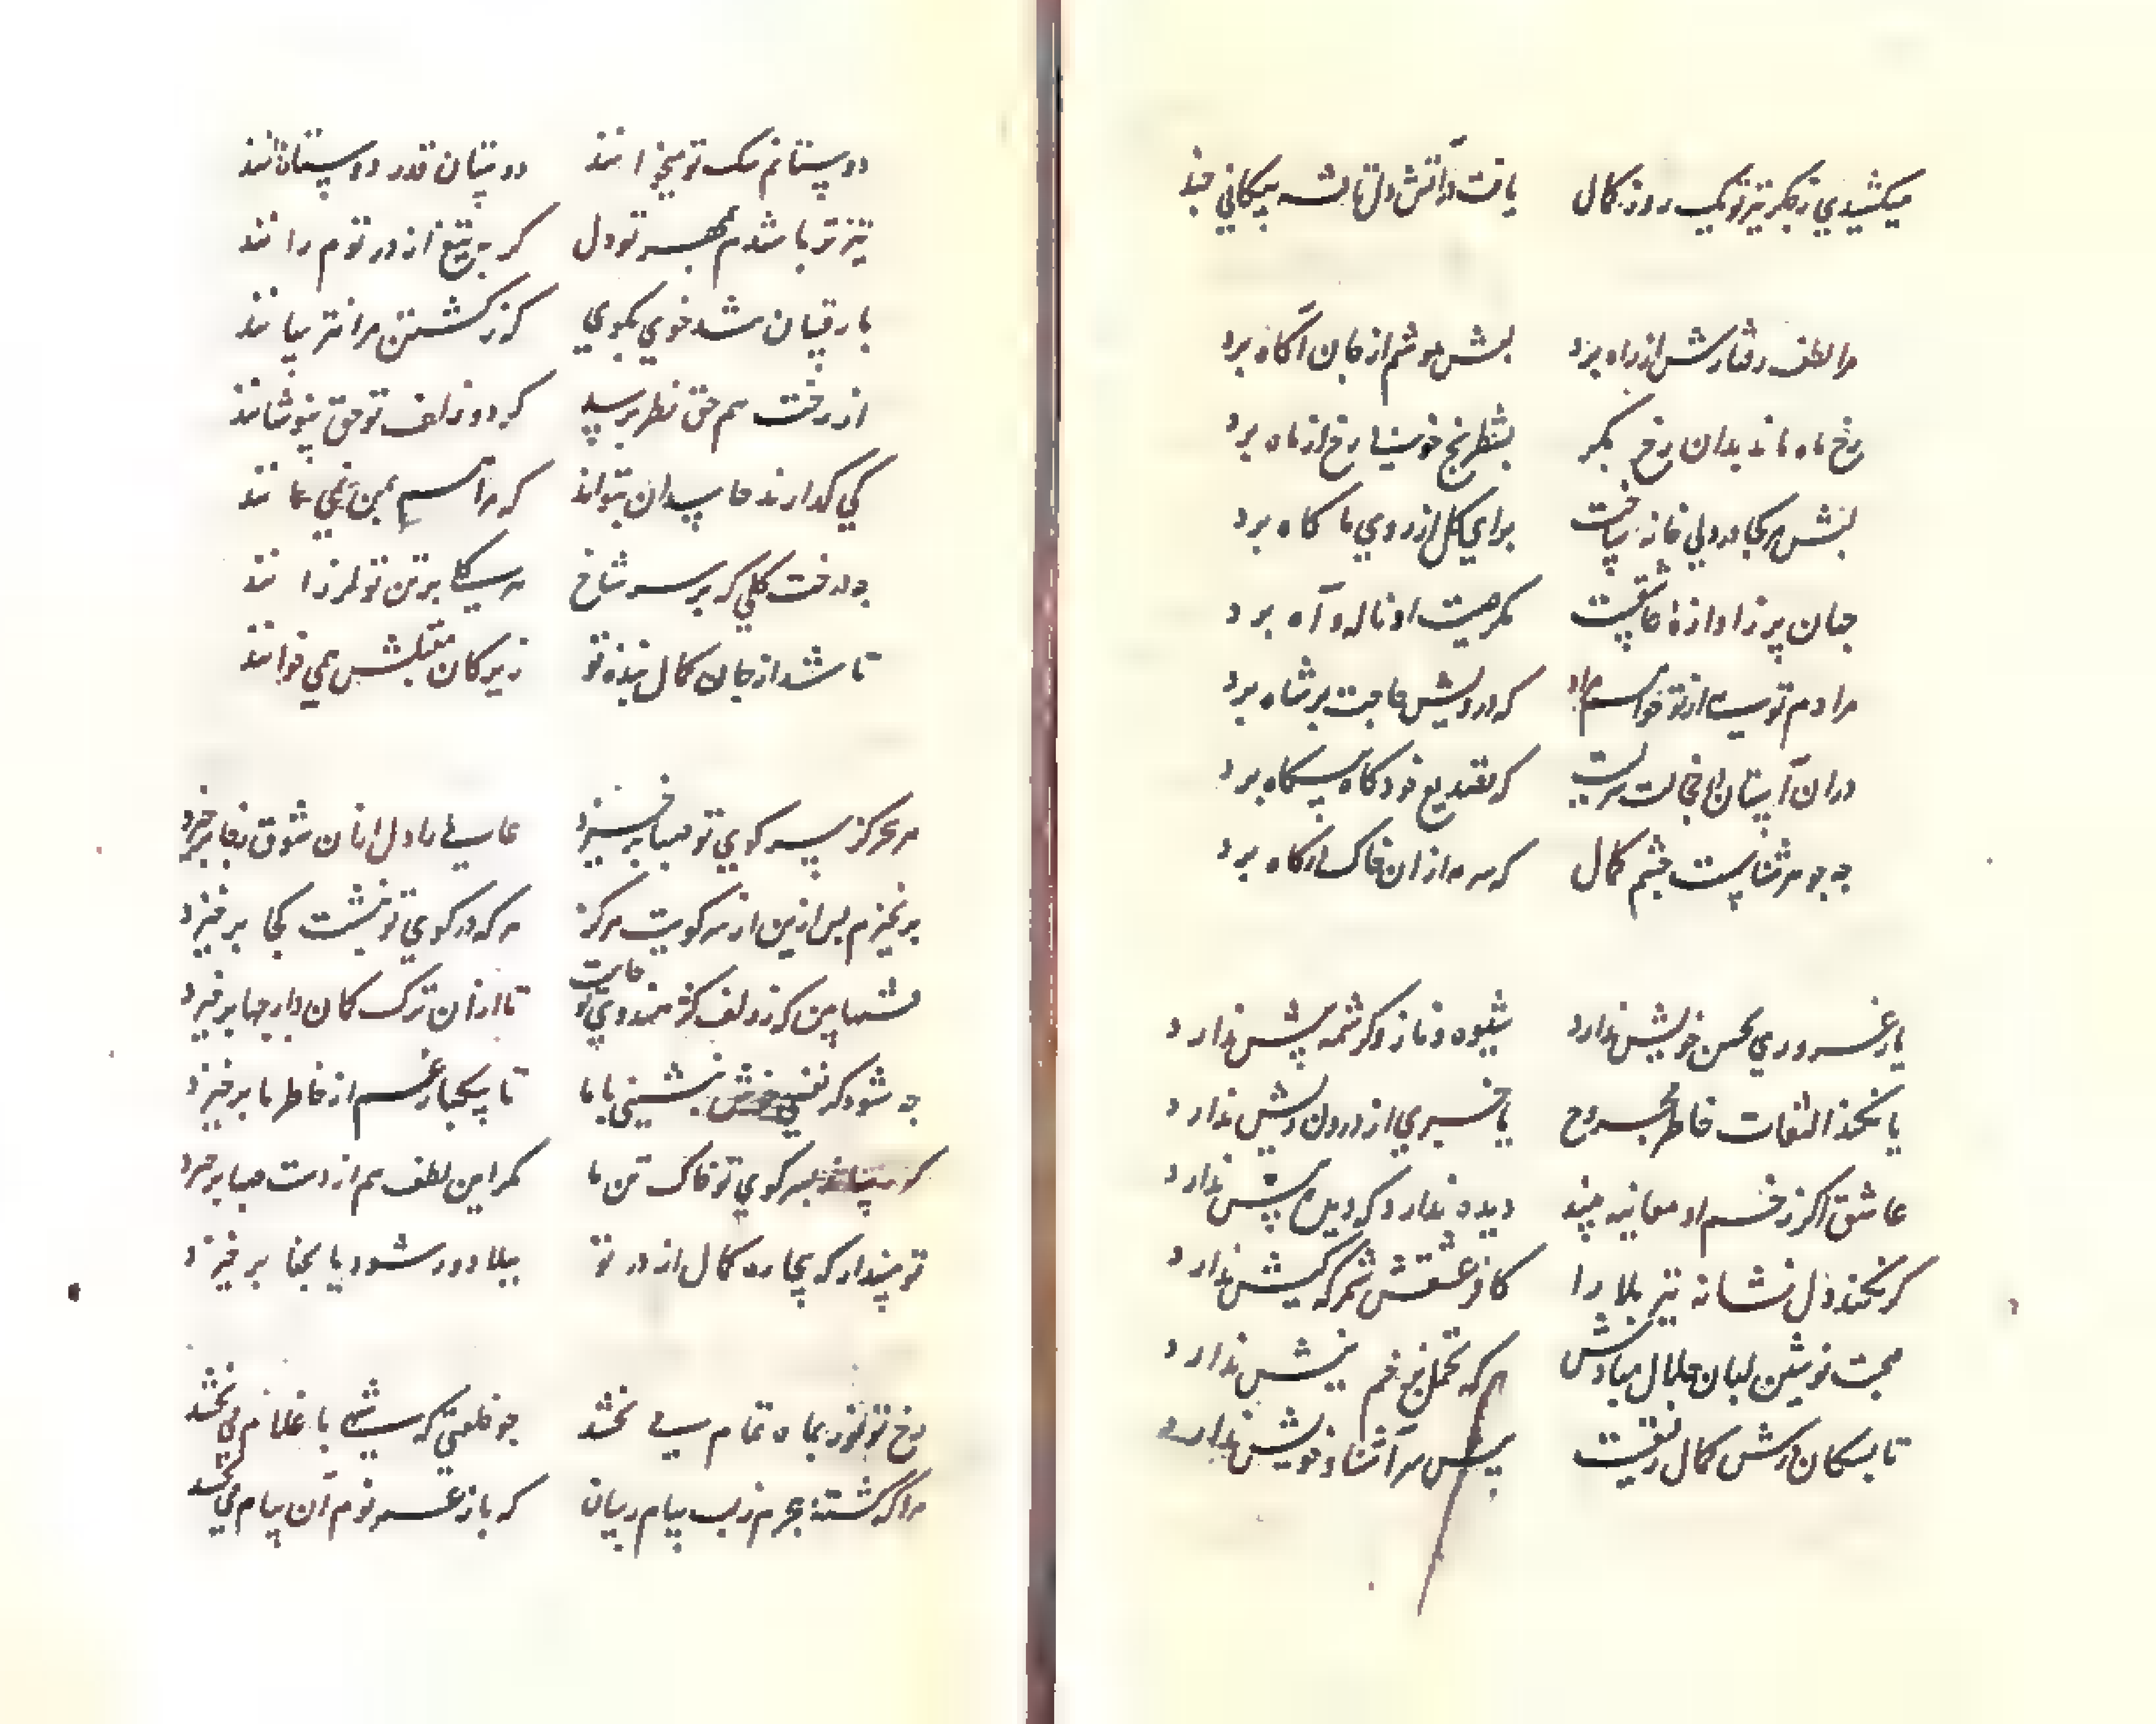 میکشیدی ز جگر تیر تو یک روز کمال یافت در آتش دل تافته پیکانی چند
مرا لطف رفتارش از راه برد لبش هوشم از جان آگاه برد
رخ ماه ماند بدان رخ مگر بشطرنج خوبی رخ از ماه برد
لبش هر کجا در دلی خانه ساخت برای گل از روی ما کاه برد
جهان پر ز آوازهٔ عاشقیست مگر صیت او ناله و آه برد
مرا دم تویی از تو خواهم مراد که درویش حاجت بر شاه برد
در آن آستان خجالت بریست که تصدیع خود گاه و بیگاه برد
چه جوهرشناسست چشم کمال که سرمه از آن خاک درگاه برد
یار غروری بحسن خویش ندارد شیوه و ناز و کرشمه پیش ندارد
یا نکند التفات خاطر مجروح یا خبری از درون ریش ندارد
عاشق اگر زخم او معاینه بیند دیده ندارد که دید پیش ندارد
گر نکند دل نشانه تیر بلا را کافر عشقش شمر که کیش ندارد
صحبت نوشین لبان حلال مبادش هر که تحمل بزخم نیش ندارد
تا بسگان درش کمال رفیقست پیش سر آشنا و خویش ندارد
دوستانم سگ تو میخوانند دوستان قدر دوستان دانند
تیزتر باشدم بمهر تو دل گر بتیغ از در توم رانند
با رقیبان شد خوی بگوی کز کشتن مرا نترسانند
از رخت هم حق نظر برسد گر دو زلف تو حق نپوشانند
کی گذارند حاسدان بتوام که مرا هم بمن نمی‌مانند
چه درخت گلی که بر سر شاخ مرسگا بر تن تو لرزانند
تا شد از جان کمال بنده تو زیرکان مقبلش همی خوانند
هر سحر کز سر کوی تو صبا برخیزد عاشقی با دل از آن شوق ز جا برخیزد
برنخیزم پس ازین از سر کویت هرگز هر که در کوی تو بنشست کجا برخیزد
فتنها بین که ز زلف کژ هندوی تو خاست تا از آن ترک کمان‌دار چها برخیزد
چه شود گر نفسی خوش بنشینی با ما تا بیکبار غم از خاطر ما برخیزد
که رساند بسر کوی تو خاک تن ما مگر این لطف هم از دست صبا برخیزد
تو مپندار که بیچاره کمال از در تو ببلا دور شود یا بجفا برخیزد
رخ تو نور بماه تمام می بخشد چو خلعتی که شهی با غلام می بخشد
مرا که کشته هجرم ز لب پیام رسان که باز عمر نوم آن پیام می بخشد